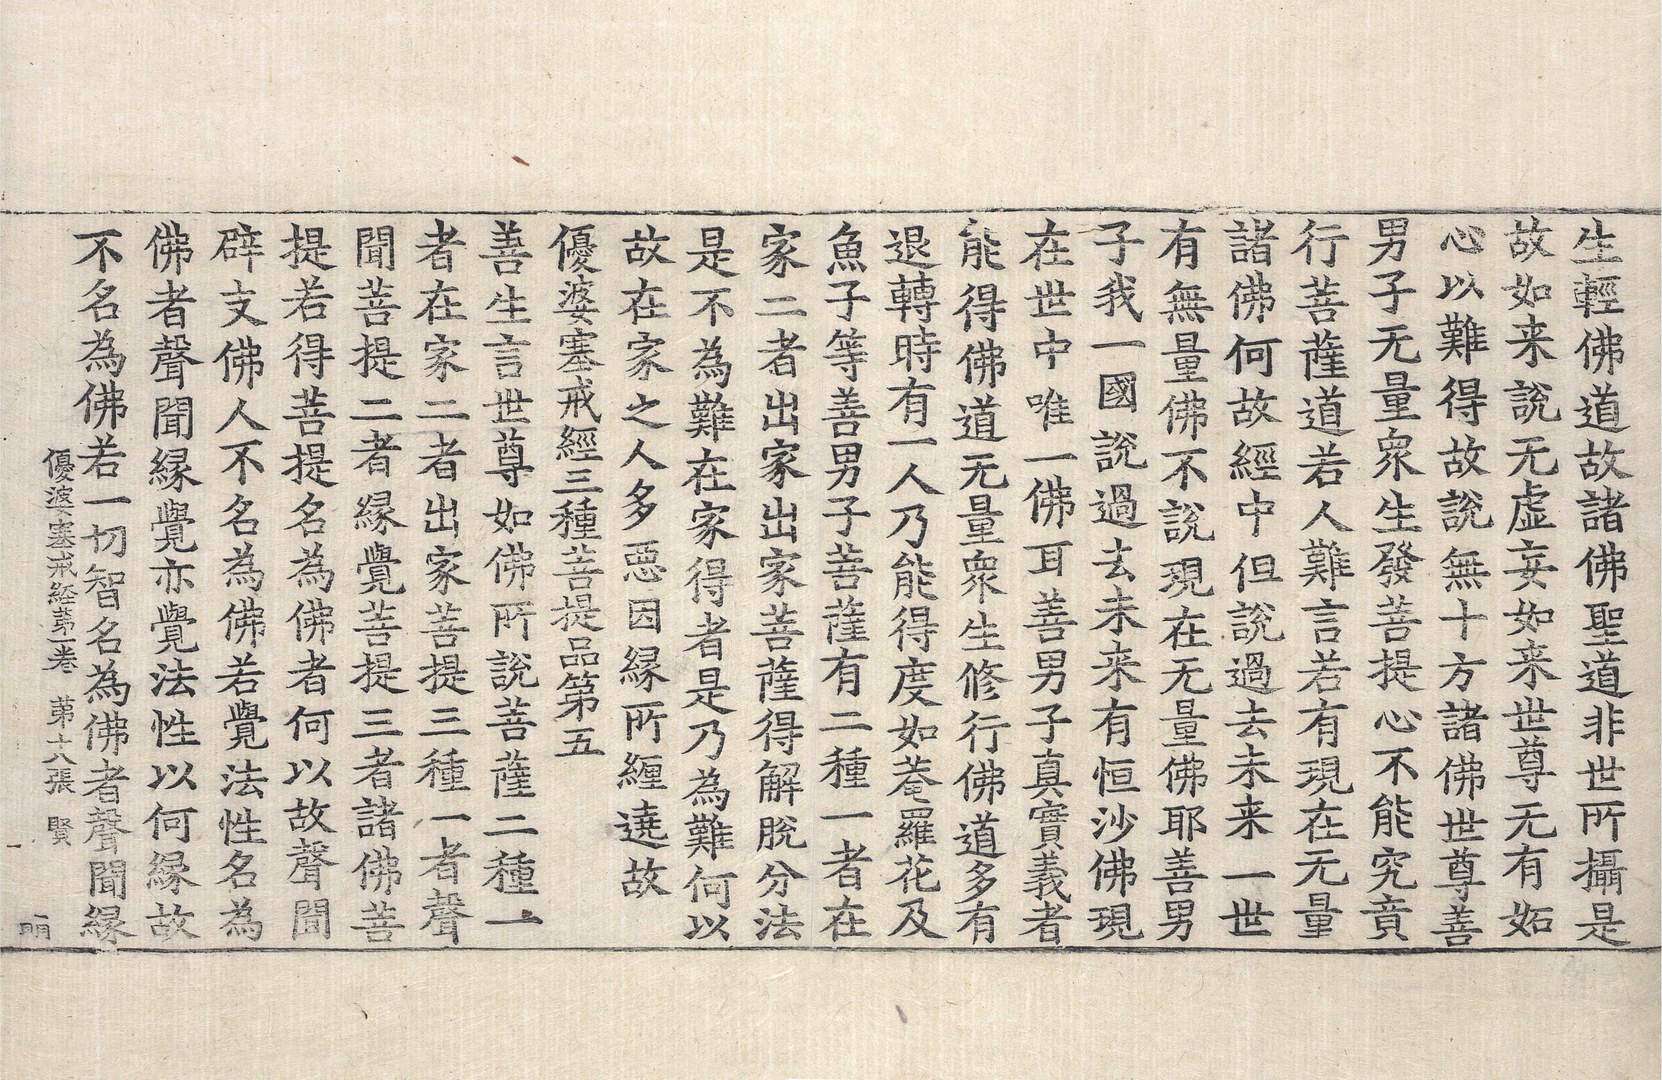 生輕佛道故諸佛聖道非世所攝是
故如来說无虚妄如来世尊无有妬
心以難得故說無十方諸佛世尊善
男子无量衆生發菩提心不能究竟
行菩薩道若人難言若有現在无量
諸佛何故經中但說過去未来一世
有無量佛不說現在无量佛耶善男
子我一國說過去未来有恒沙佛現
在世中唯一佛耳善男子真實義者
能得佛道无量衆生修行佛道多有
退轉時有一人乃能得度如菴羅花及
魚子等善男子菩薩有二種一者在
家二者出家出家菩薩得解脫分法
是不為難在家得者是乃為難何以
故在家之人多惡因緣所纏遶故
優婆塞戒經三種菩提品第五
善生言世尊如佛所說菩薩二種一
者在家二者出家菩提三種一者聲
聞菩提二者緣覺菩提三者諸佛菩
提若得菩提名為佛者何以故聲聞
辟支佛人不名為佛若覺法性名為
佛者聲聞緣覺亦覺法性以何緣故
不名為佛若一切智名為佛者聲聞緣
優婆塞戒経第一卷 第十八張 賢
明